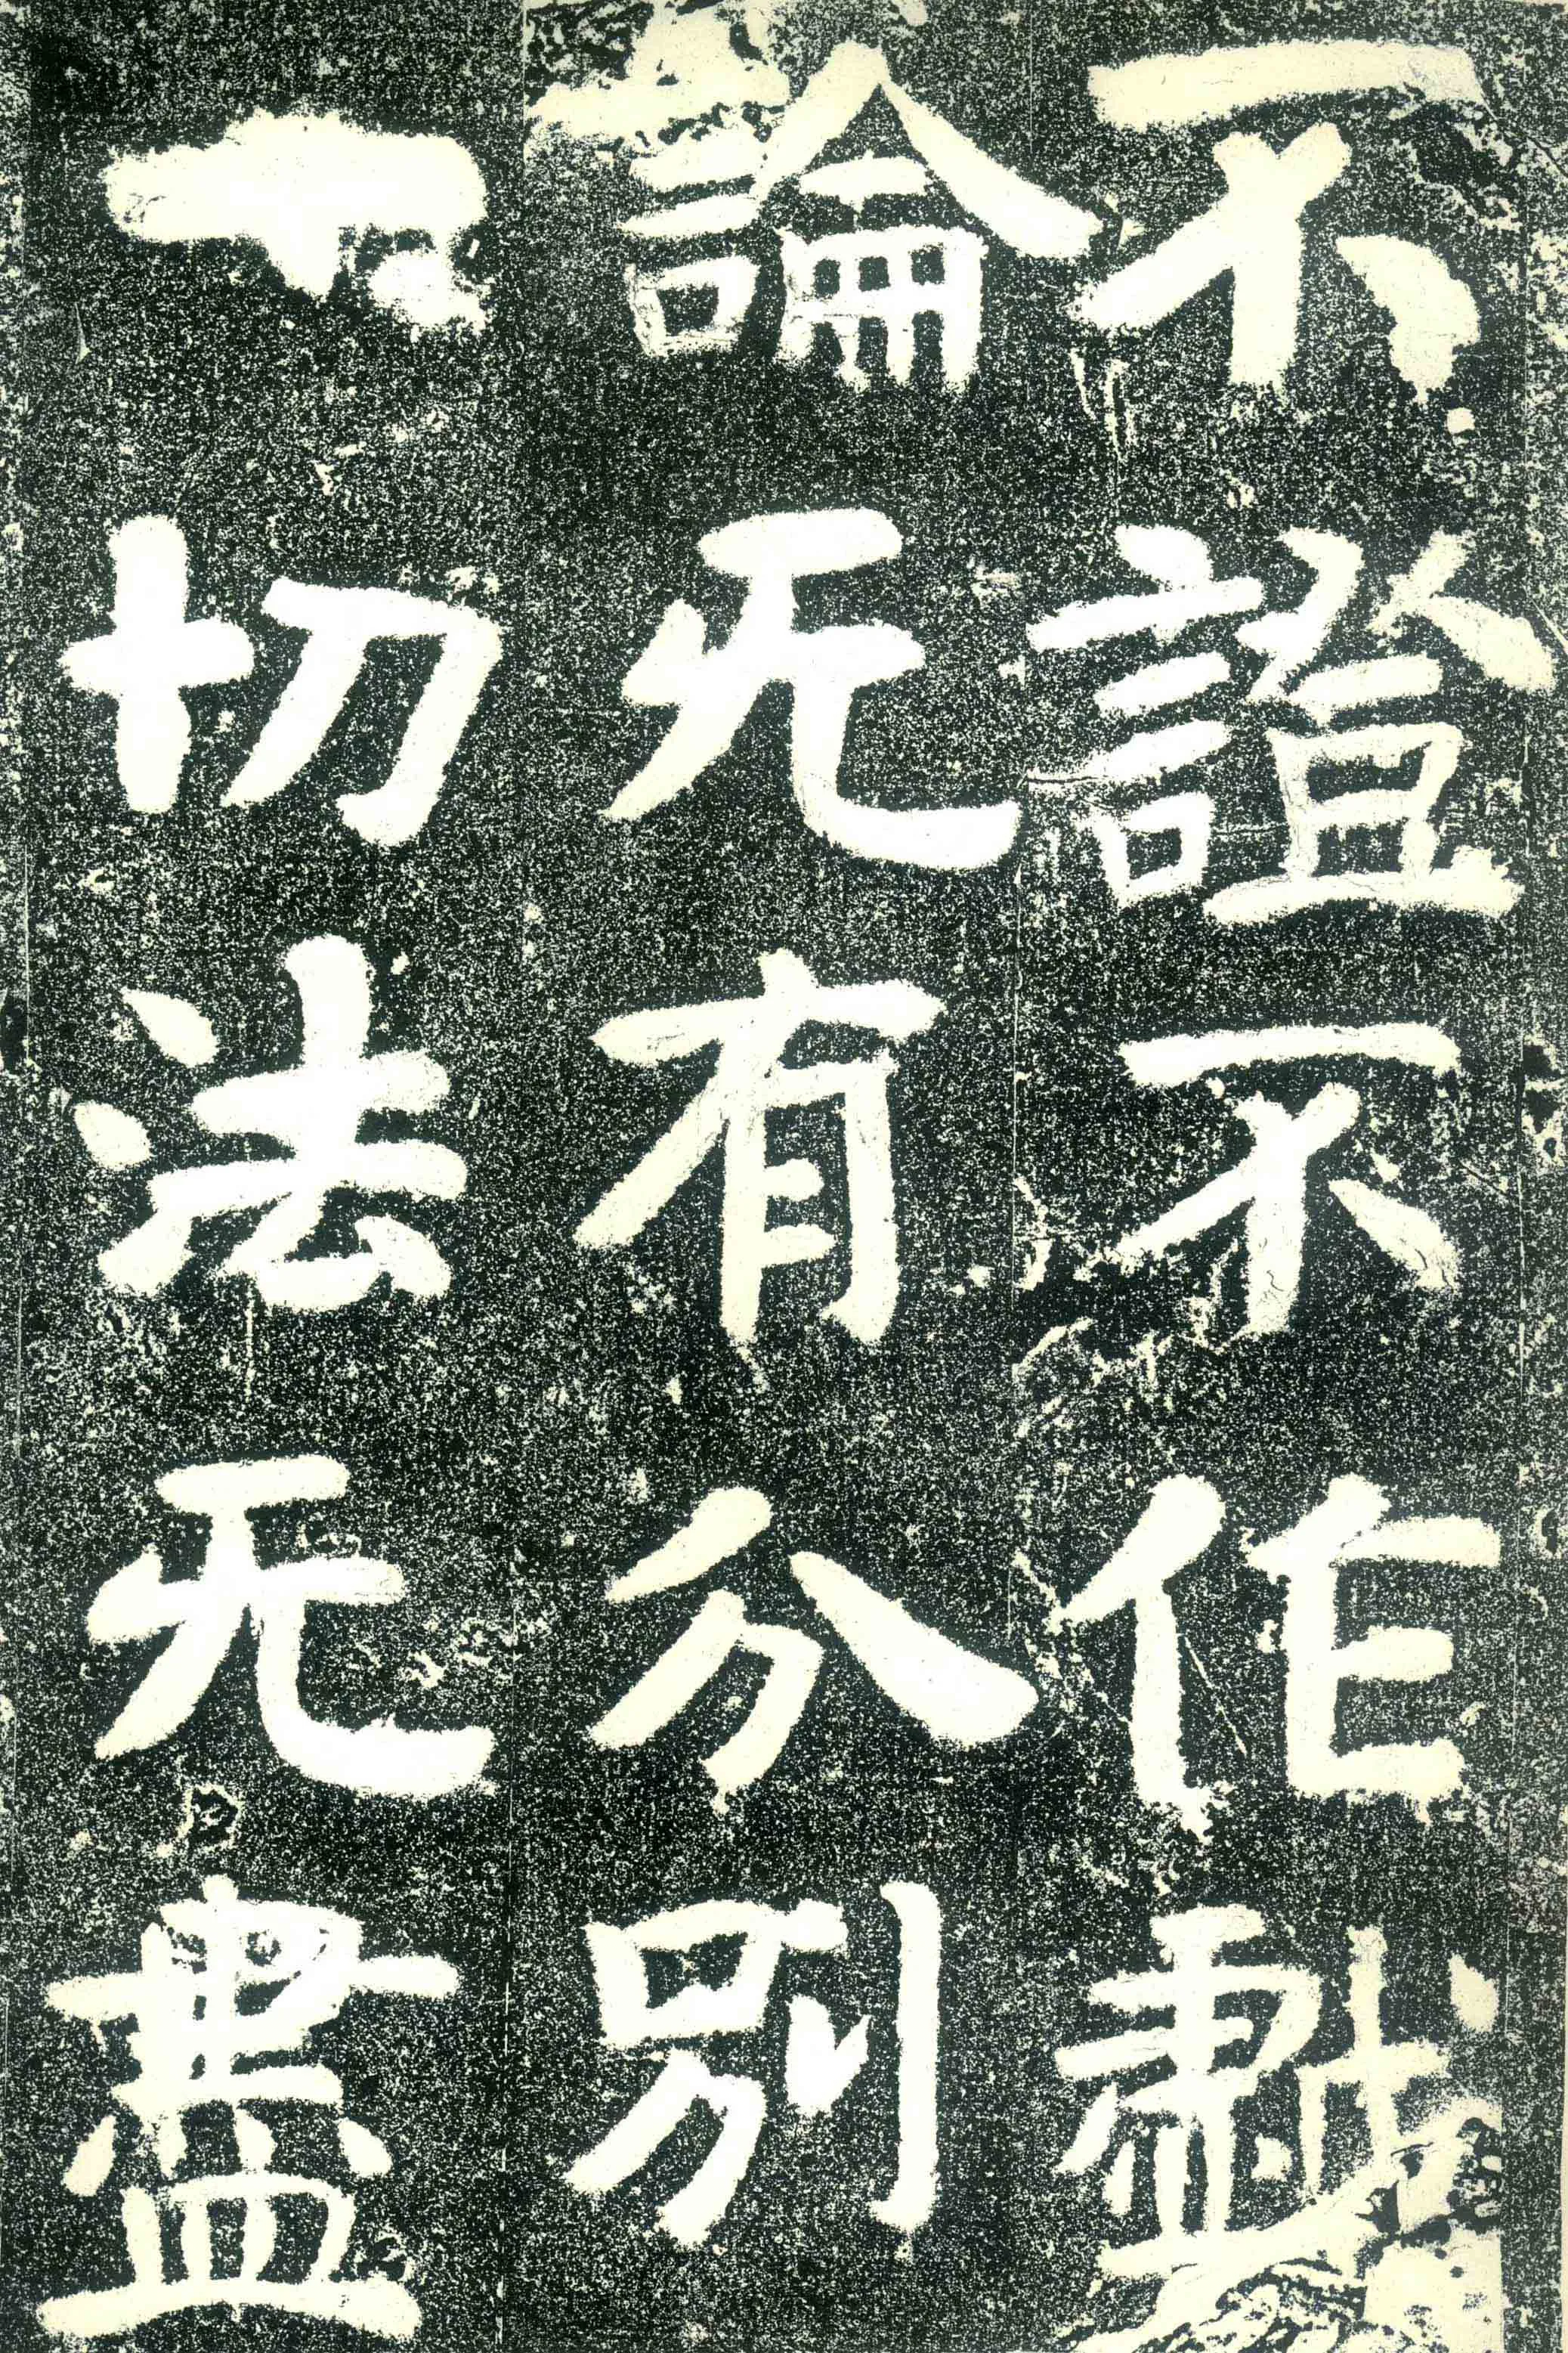 不證不作戱
論无有分別
一切法无盡